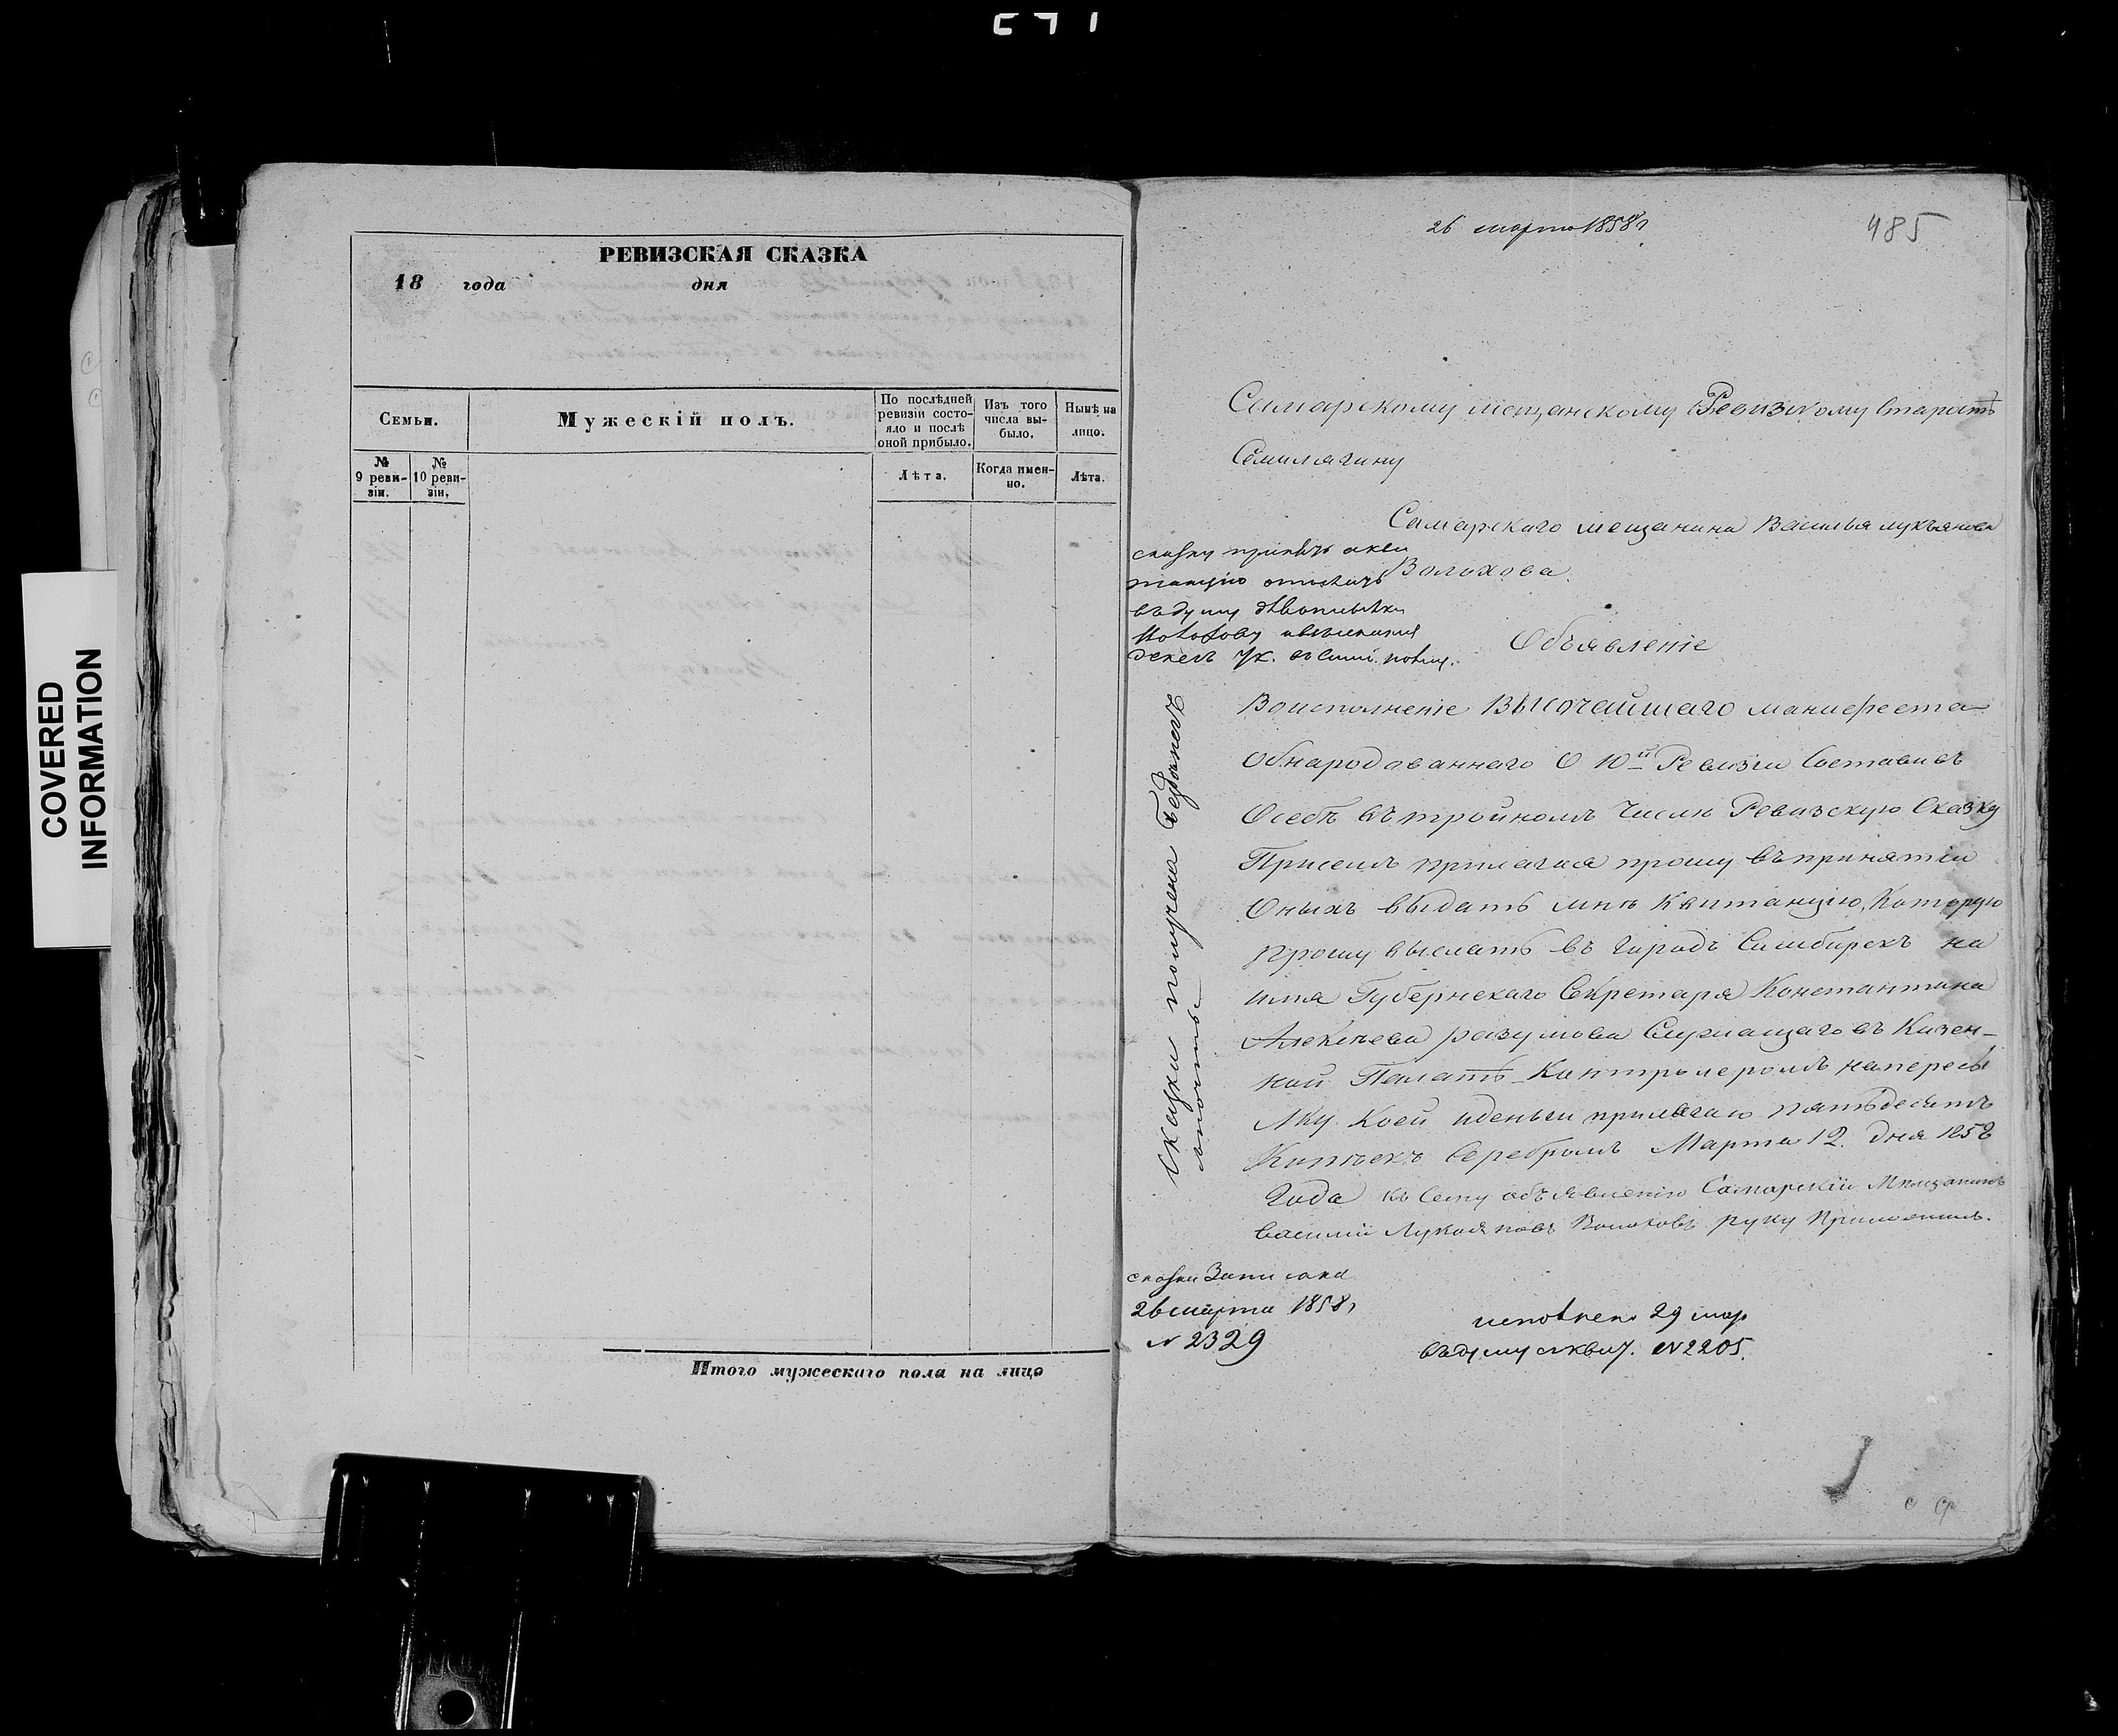 COVERED
INFORMATION
РЕВИЗСКАЯ СКАЗКА
18 года дня
Семьи.
Мужескій полъ.
По послѣдней
ревизіи состо-
яло и послѣ
оной прибыло.
Изъ того
числа вы-
было.
Нынѣ на
лицо.
№
9 реви-
зіи.
№
10 реви-
зіи.
Лѣта.
Когда имен-
но.
Лѣта.
Итого мужескаго пола на лицо
26 марта 1858 г
485
Самарскому мещанскому Ревизкому Старостѣ
Семилягину
Самарскаго мещанина Василья лукьянова
Волохова.
сказку принять
въ думу
Объявленіе
Во исполненіе ВЫСОЧАЙШАГО манифеста
обнародованнаго О 10й Ревизіи Составивъ
Осебѣ въ тройномъ числѣ Ревизскую Сказку
Присемъ прилагая прошу въ принятіи
Оныхъ выдать мнѣ Квитанцію, Которую
прошу выслать въ городъ Симбирскъ на
имя Губернскаго Секретаря Константина
Алексѣева разумова Служащаго въ Казен-
ной Палатѣ Контролеромъ на пересы
лку коей иденьги прилагаю пятьдесятъ
Копѣекъ Серебромъ Марта 12 дня 1858
Года къ сему объявленію Самарскій Мещанинъ
Василій Лукояновъ Волоховъ руку Приложилъ.
Сказки получена
сказки Записана
26 марта 1858 г
№ 2329
исполнено 29 мар
въ думу № 2205.